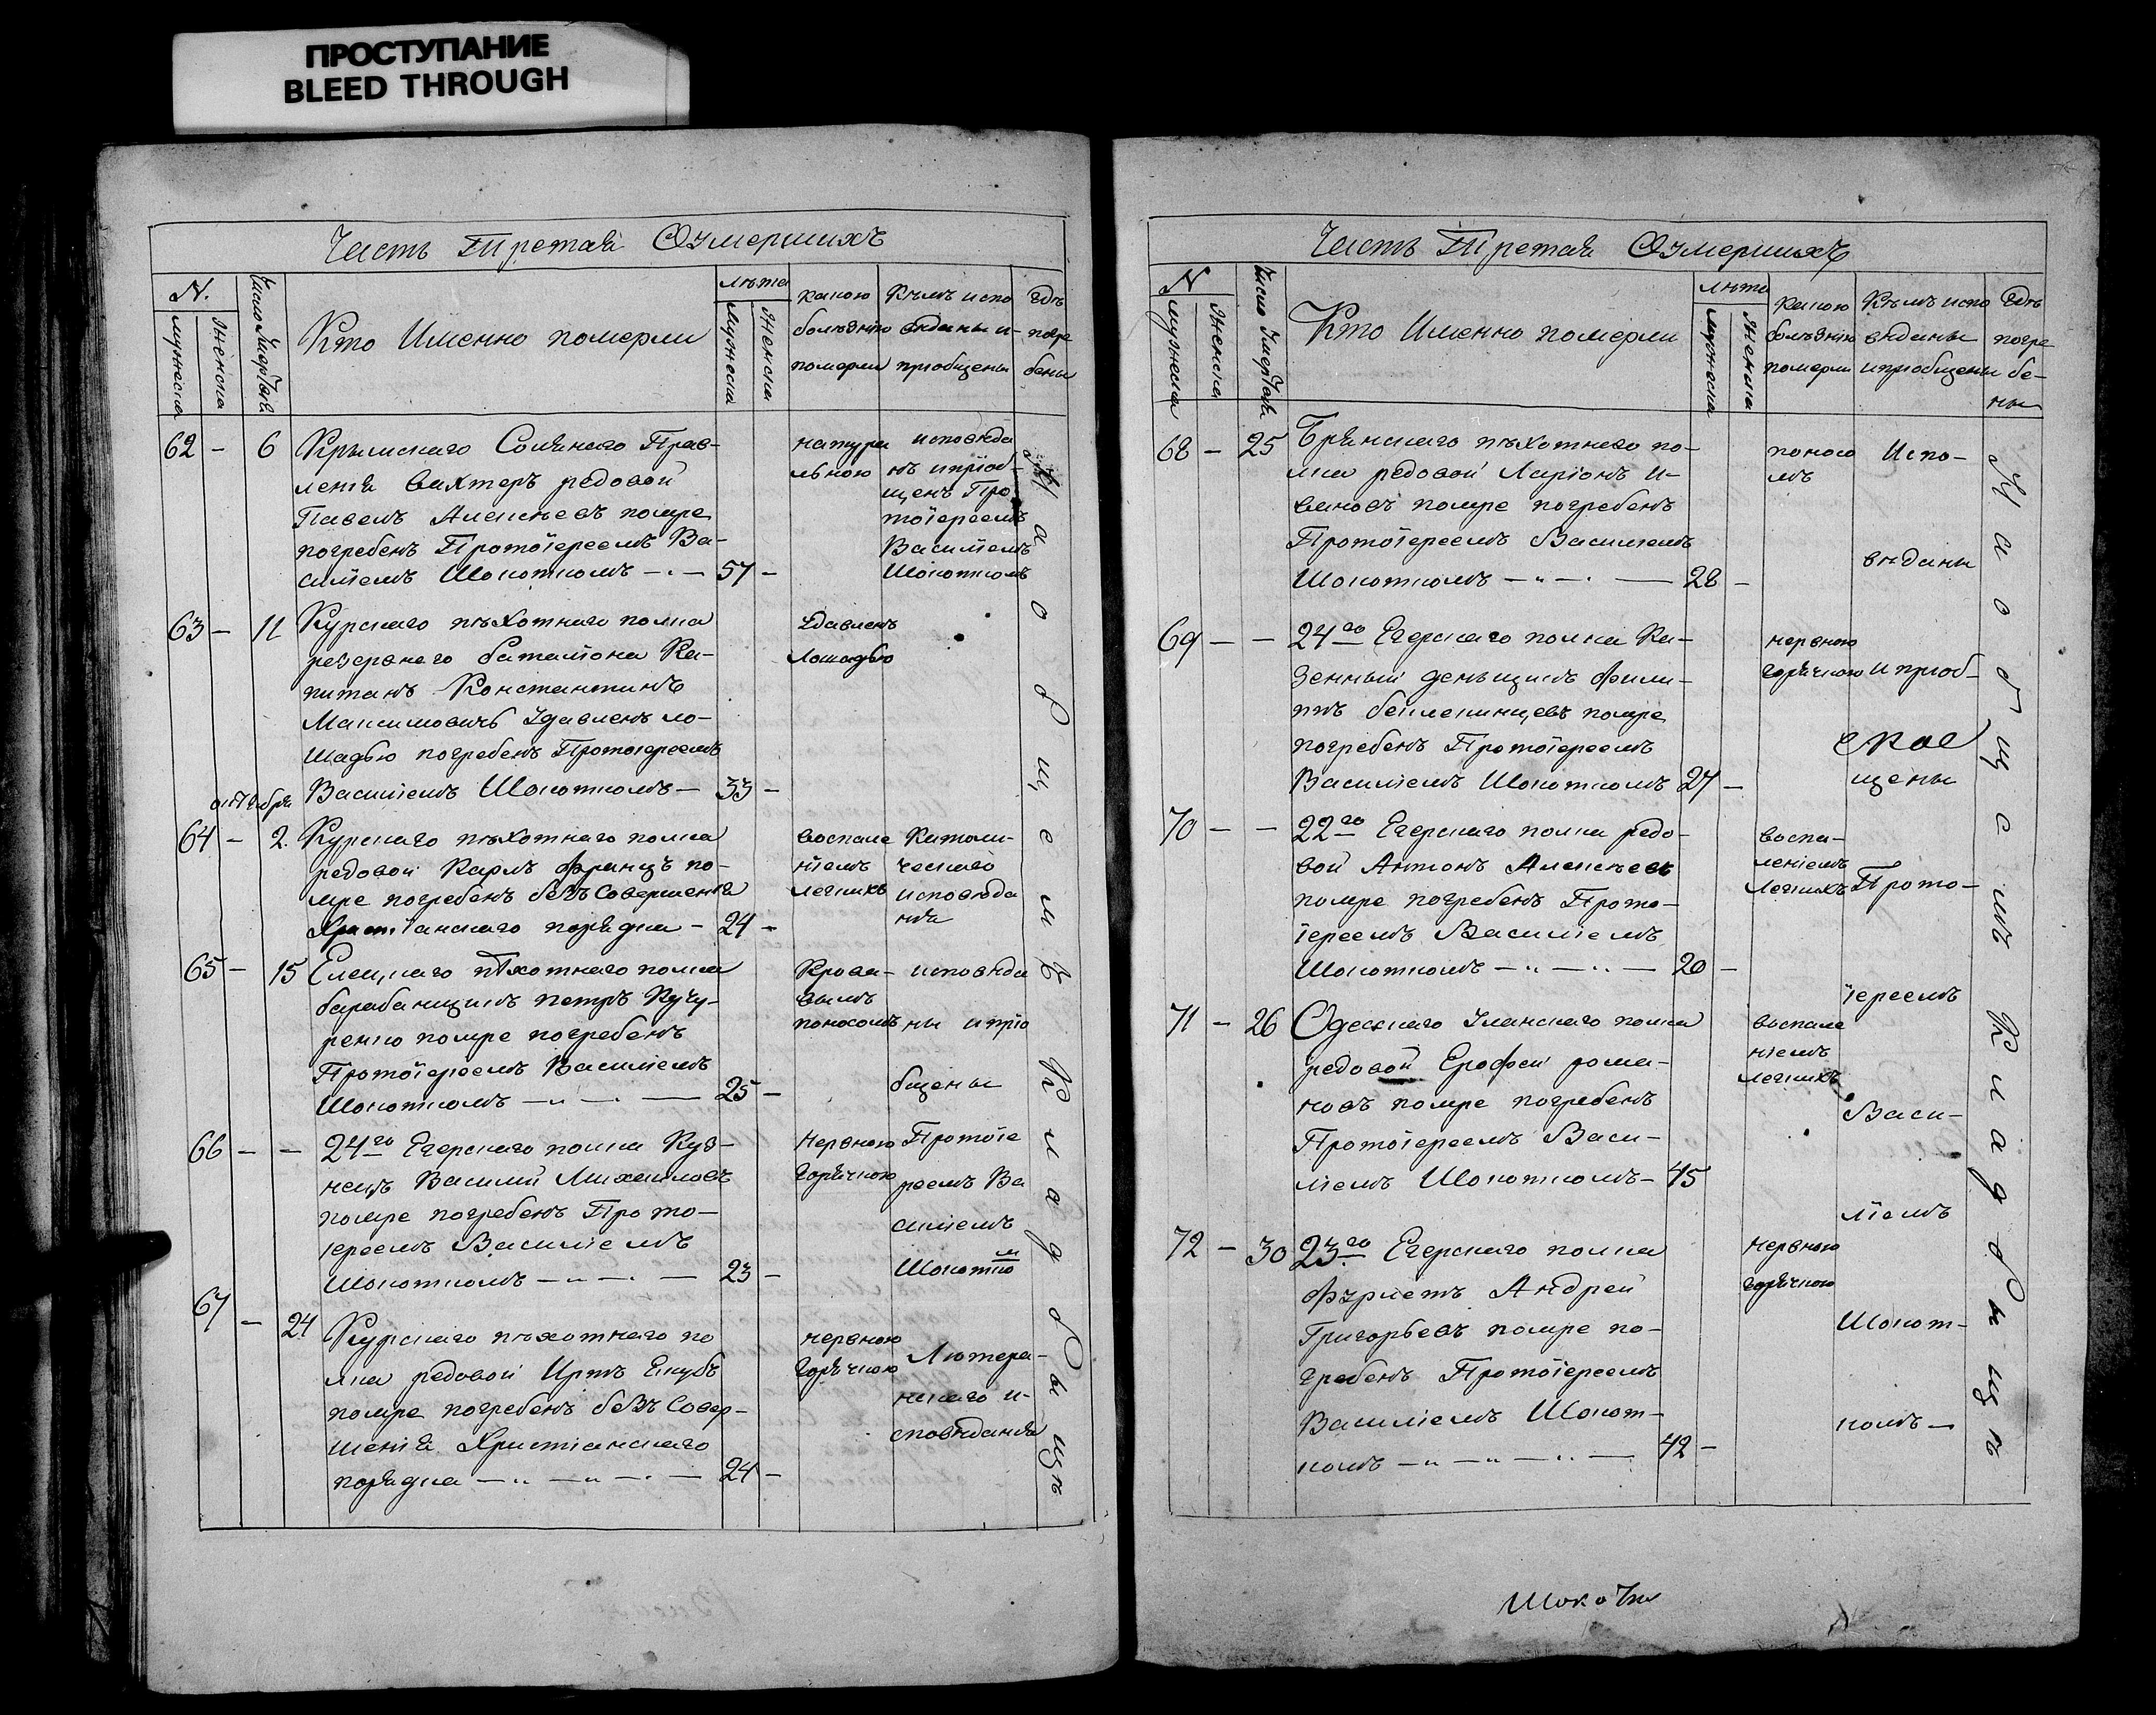 ПРОСТУПАНИЕ
BLEED THROUGH
Часть Третая Оумершихъ
N.
мужеска
женска
Число Умертвія
Кто Именно померли
лѣта
мужеска
женска
какою
болѣзнію
померли
Кѣмъ испо
вѣданы и-
пріобщены
гдѣ
погре
бены
62 - 6 Крымскаго Солянаго Прав-
ленія вахтеръ редовой
Павелъ Алексѣевъ помре
погребенъ Протоіереемъ Ва-
силіемъ Шокоткомъ - 57 -
натура
льною
исповѣда
нъ и пріоб-
щенъ Про
тоіереемъ
Василіемъ
Шокоткомъ
63 - 11 Курскаго пѣхотнаго полка
резервнаго баталіона Ка-
питанъ Константинъ
Максимовичъ Удавленъ ло-
шадью погребенъ Протоіереемъ
Василіемъ Шокоткомъ - 33 -
Удавленъ
Лошадью
октября
64 - 2. Курскаго пѣхотнаго полка
редовой Карлъ Францъ по-
мре погребенъ безъ Совершенія
Христіанскаго порядка - 24 -
воспале
ніемъ
легкихъ
Католи-
ческаго
исповѣда
нія
65 - 15 Елецкаго пѣхотнаго полка
барабанщикъ петръ Кучу-
ренко помре погребенъ
Протоіереемъ Василіемъ
Шокоткомъ - 25 -
Крова-
вымъ
поносомъ
исповѣда
ны и прio
бщены
66 - - 24го Егерскаго полка Куз-
нецъ Василій Михаиловъ
помре погребенъ Прото-
іереемъ Василіемъ
Шокоткомъ - 23 -
Нервною
Горячкою
Протоіе
реемъ Ва
силіемъ
Шокотко
м
67 - 24 Курскаго пѣхотнаго по
лка редовой Иртъ Екубъ
помре погребенъ безъ Совер-
шенія Христіанскаго
порядка - 24 -
нервною
Горячкою
Лютера-
нскаго и-
сповѣданія
На общемъ Кладбыщѣ
Часть Третая Оумершихъ
N
мужеска
женска
Число Умертвія
Кто Именно померли
лѣта
мужеска
женска
какою
болѣзнію
померли
Кѣмъ испо
вѣданы
и пріобщены
гдѣ
погре
бе-
ны
68 - 25 Брянскаго пѣхотнаго по-
лка редовой Ларіонъ И-
вановъ помре погребенъ
Протоіереемъ Василіемъ
Шокоткомъ - 28 -
поносо
мъ
Испо-
вѣданы
69 - - 24го Егерскаго полка Ка-
зенный деньщикъ Фили-
пъ бейлекинцевъ помре
погребенъ Протоіереемъ
Василіемъ Шокоткомъ 27 -
нервною
горячкою
и пріоб-
щены
70 - - 22го Егерскаго полка редо-
вой Антонъ Алексѣевъ
помре погребенъ Прото-
іереемъ Василіемъ
Шокоткомъ - 20 -
воспа-
леніемъ
Легкихъ
Прото-
іереемъ
71 - 26 Одесскаго Уланскаго полка
редовой Ерофей рома-
новъ помре погребенъ
Протоіереемъ Васи-
ліемъ Шокоткомъ - 45
воспале
ніемъ
легкихъ
Васи-
ліемъ
72 - 30 23го Егерскаго полка
Фурлетъ Андрей
Григорьевъ помре по-
гребенъ Протоіереемъ
Василіемъ Шокот-
комъ - 42 -
Нервною
горячкою
Шокот-
комъ -
На общемъ Кладбыщѣ
Шокотко